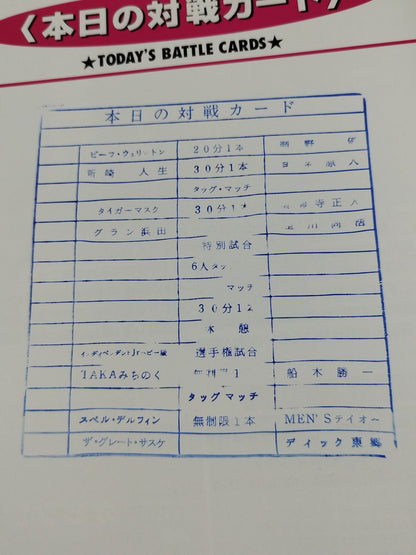 〈本日の対戦カード〉
★TODAY'S BATTLE CARDS★
本日の対戦カード
ビーフ・ウェリントン 20分1本
新崎 人生 30分1本
タッグ・マッチ
タイガーマスク 30分1本 寺正人
グラン浜田
特別試合
6人タッ
マッチ
30分1
インディペンデントJrヘビー級 選手権試合
TAKAみちのく 船木勝一
タッグマッチ
スペル・デルフィン 無制限1本 MEN'Sテイオー
ザ・グレート・サスケ ディック東郷